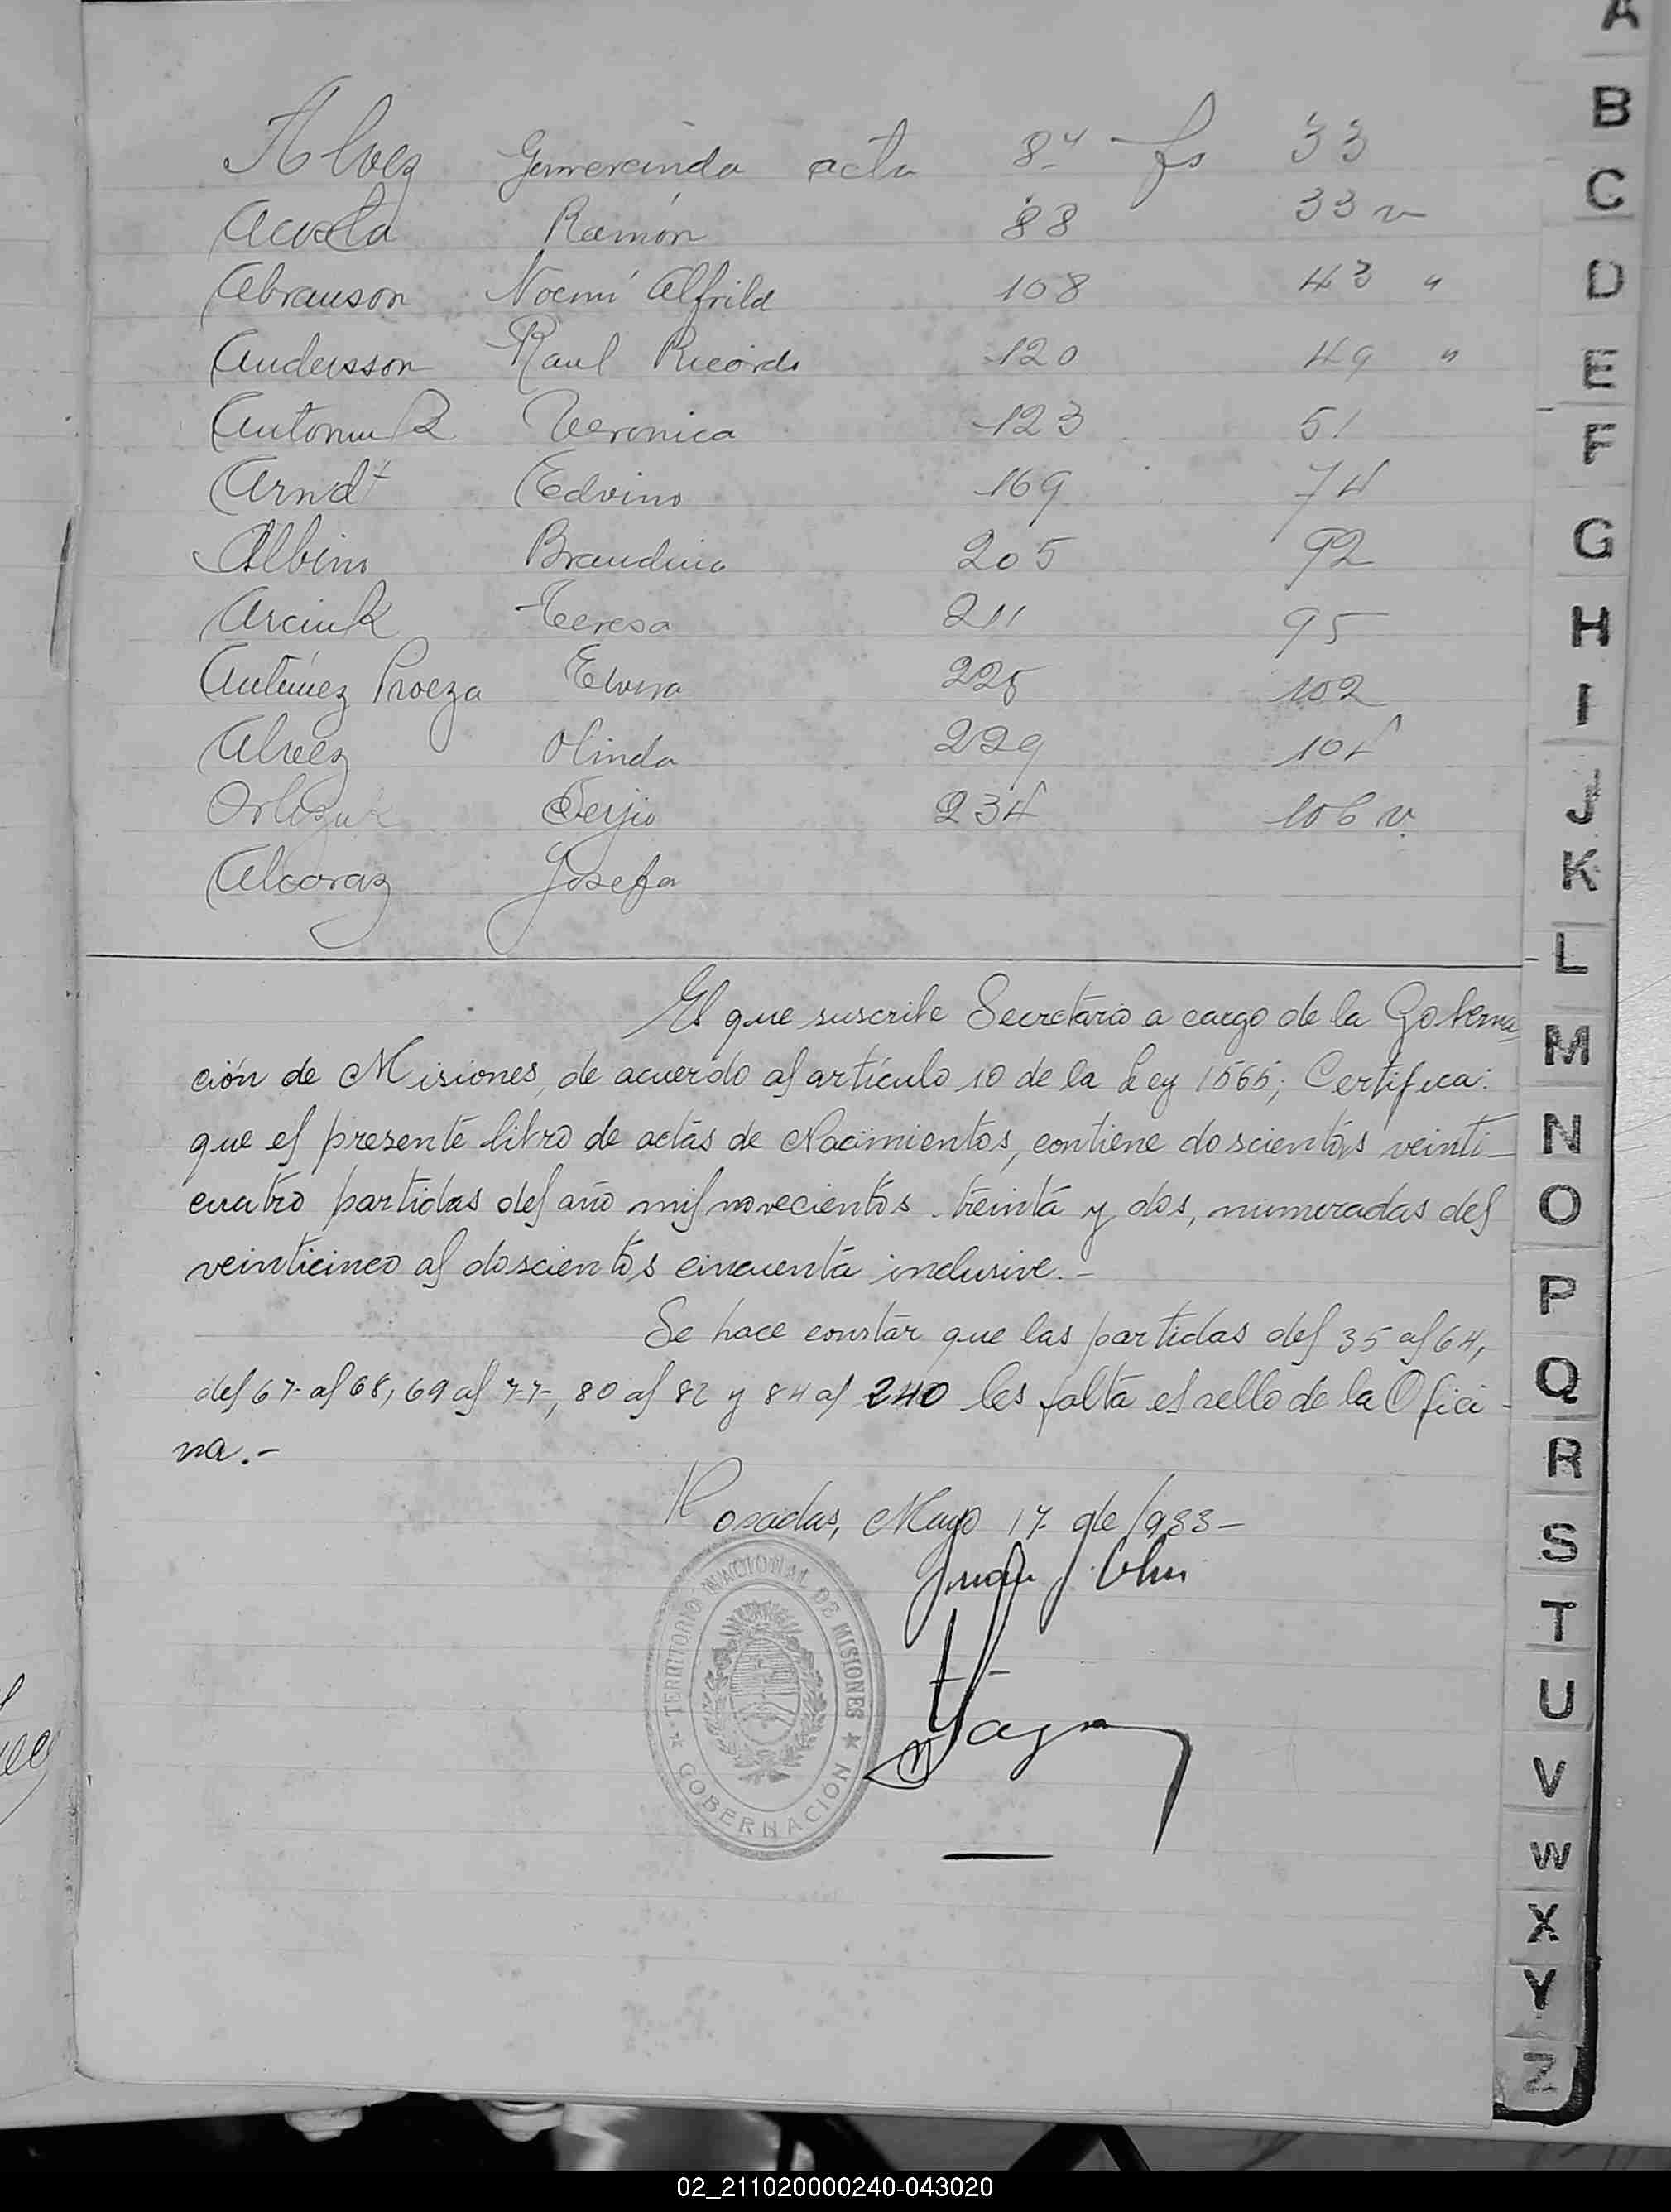 Alvez Gumercinda acta 87 fs 33
Acosta Ramón 88 33 v
Abrauson Noemi Alfrild 108 43 "
Andersson Raul Ricardo 120 49 "
Antoniuk Veronica 123 51
Arndt Edvino 169 74
Albino Braudina 205 92
Arciuk Teresa 211 95
Antúnez Proeza Elvira 225 102
Alvez Olinda 229 104
Serjio 234 106 v.
Alcaraz Josefa
El que suscribe Secretario a cargo de la Goberna
ción de Misiones, de acuerdo al artículo 10 de la Ley 1565; Certifica:
que el presente libro de actas de Nacimientos, contiene doscientos veinti-
cuatro partidas del año mil novecientos treinta y dos, numeradas del
veinticinco al doscientos cincuenta inclusive.-
Se hace constar que las partidas del 35 al 64,
del 67 al 68, 69 al 77, 80 al 82 y 84 al 240 les falta el sello de la Ofici-
na.-
Posadas, Mayo 17 de 1933-
TERRITORIO NACIONAL DE MISIONES
GOBERNACIÓN
A
B
C
D
E
F
G
H
I
J
K
L
M
N
O
P
Q
R
S
T
U
V
W
X
Y
Z
02_211020000240-043020